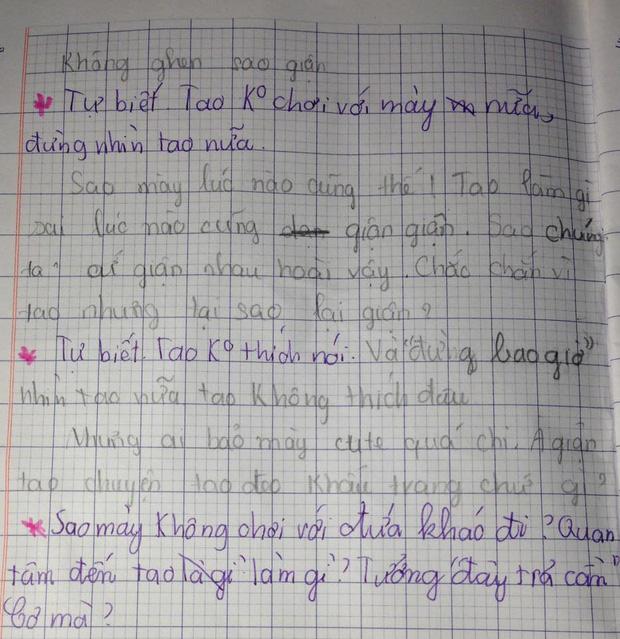 Không ghen sao giận
* Tự biết. Tao K° chơi với mày nữa,
đừng nhìn tao nữa.
Sao mày lúc nào cũng thế! Tao làm gì
sai lúc nào cũng giận giận. Sao chúng
ta cứ giận nhau hoài vậy. Chắc chắn vì
tao nhưng tại sao lại giận?
* Tự biết. Tao K° thích nói. Và "đừng bao giờ"
nhìn tao nữa tao Không thích đâu
Nhưng ai bảo mày cute quá chi. A giận
tao chuyện tao đeo Khẩu trang chứ gì?
* Sao mày Không chơi với đứa khác đi? Quan
tâm đến tao làm gì? Tưởng đây trả cần"